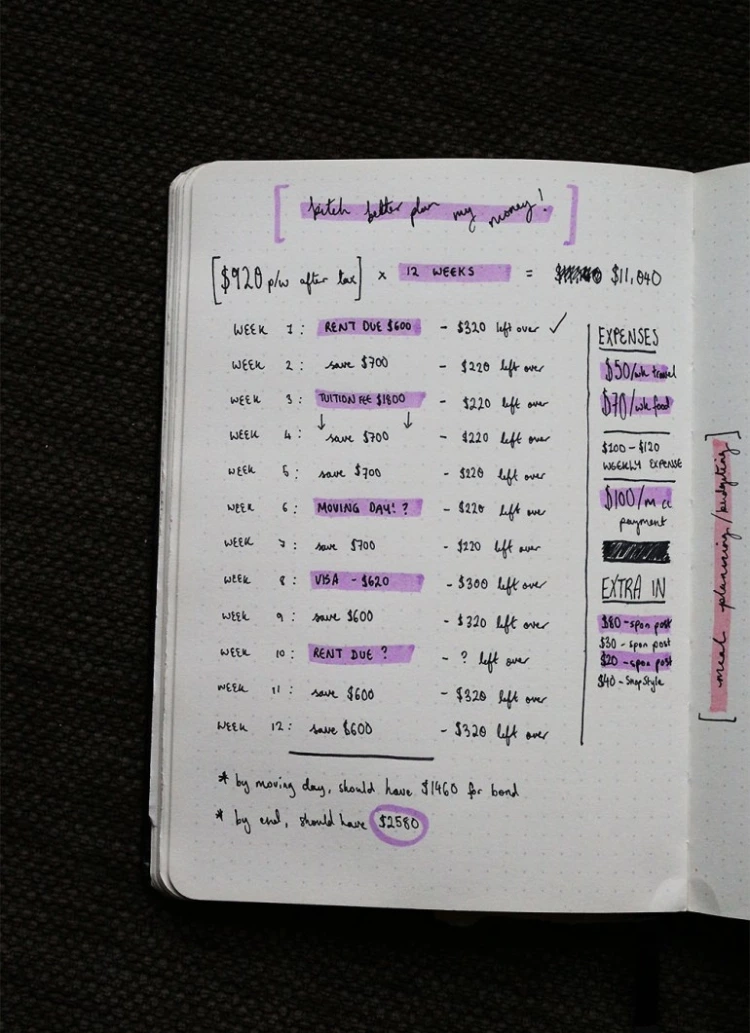 bitch better plan my money!
[$920 p/w after tax] x 12 WEEKS = $11,040
WEEK 1: RENT DUE $600 - $320 left over ✓
WEEK 2: save $700 - $220 left over
WEEK 3: TUITION FEE $1800 - $220 left over
WEEK 4: save $700 - $220 left over
WEEK 5: save $700 - $220 left over
WEEK 6: MOVING DAY! ? - $220 left over
WEEK 7: save $700 - $220 left over
WEEK 8: VISA - $620 - $300 left over
WEEK 9: save $600 - $320 left over
WEEK 10: RENT DUE ? - ? left over
WEEK 11: save $600 - $320 left over
WEEK 12: save $600 - $320 left over
* by moving day, should have $1460 for bond
* by end, should have $2580
EXPENSES
$50/wk travel
$70/wk food
$100 - $120
WEEKLY EXPENSE
$100/m cc
payment
EXTRA IN
$80 - spon post
$30 - spon post
$20 - spon post
$40 - ShopStyle
[meal planning/budgeting]